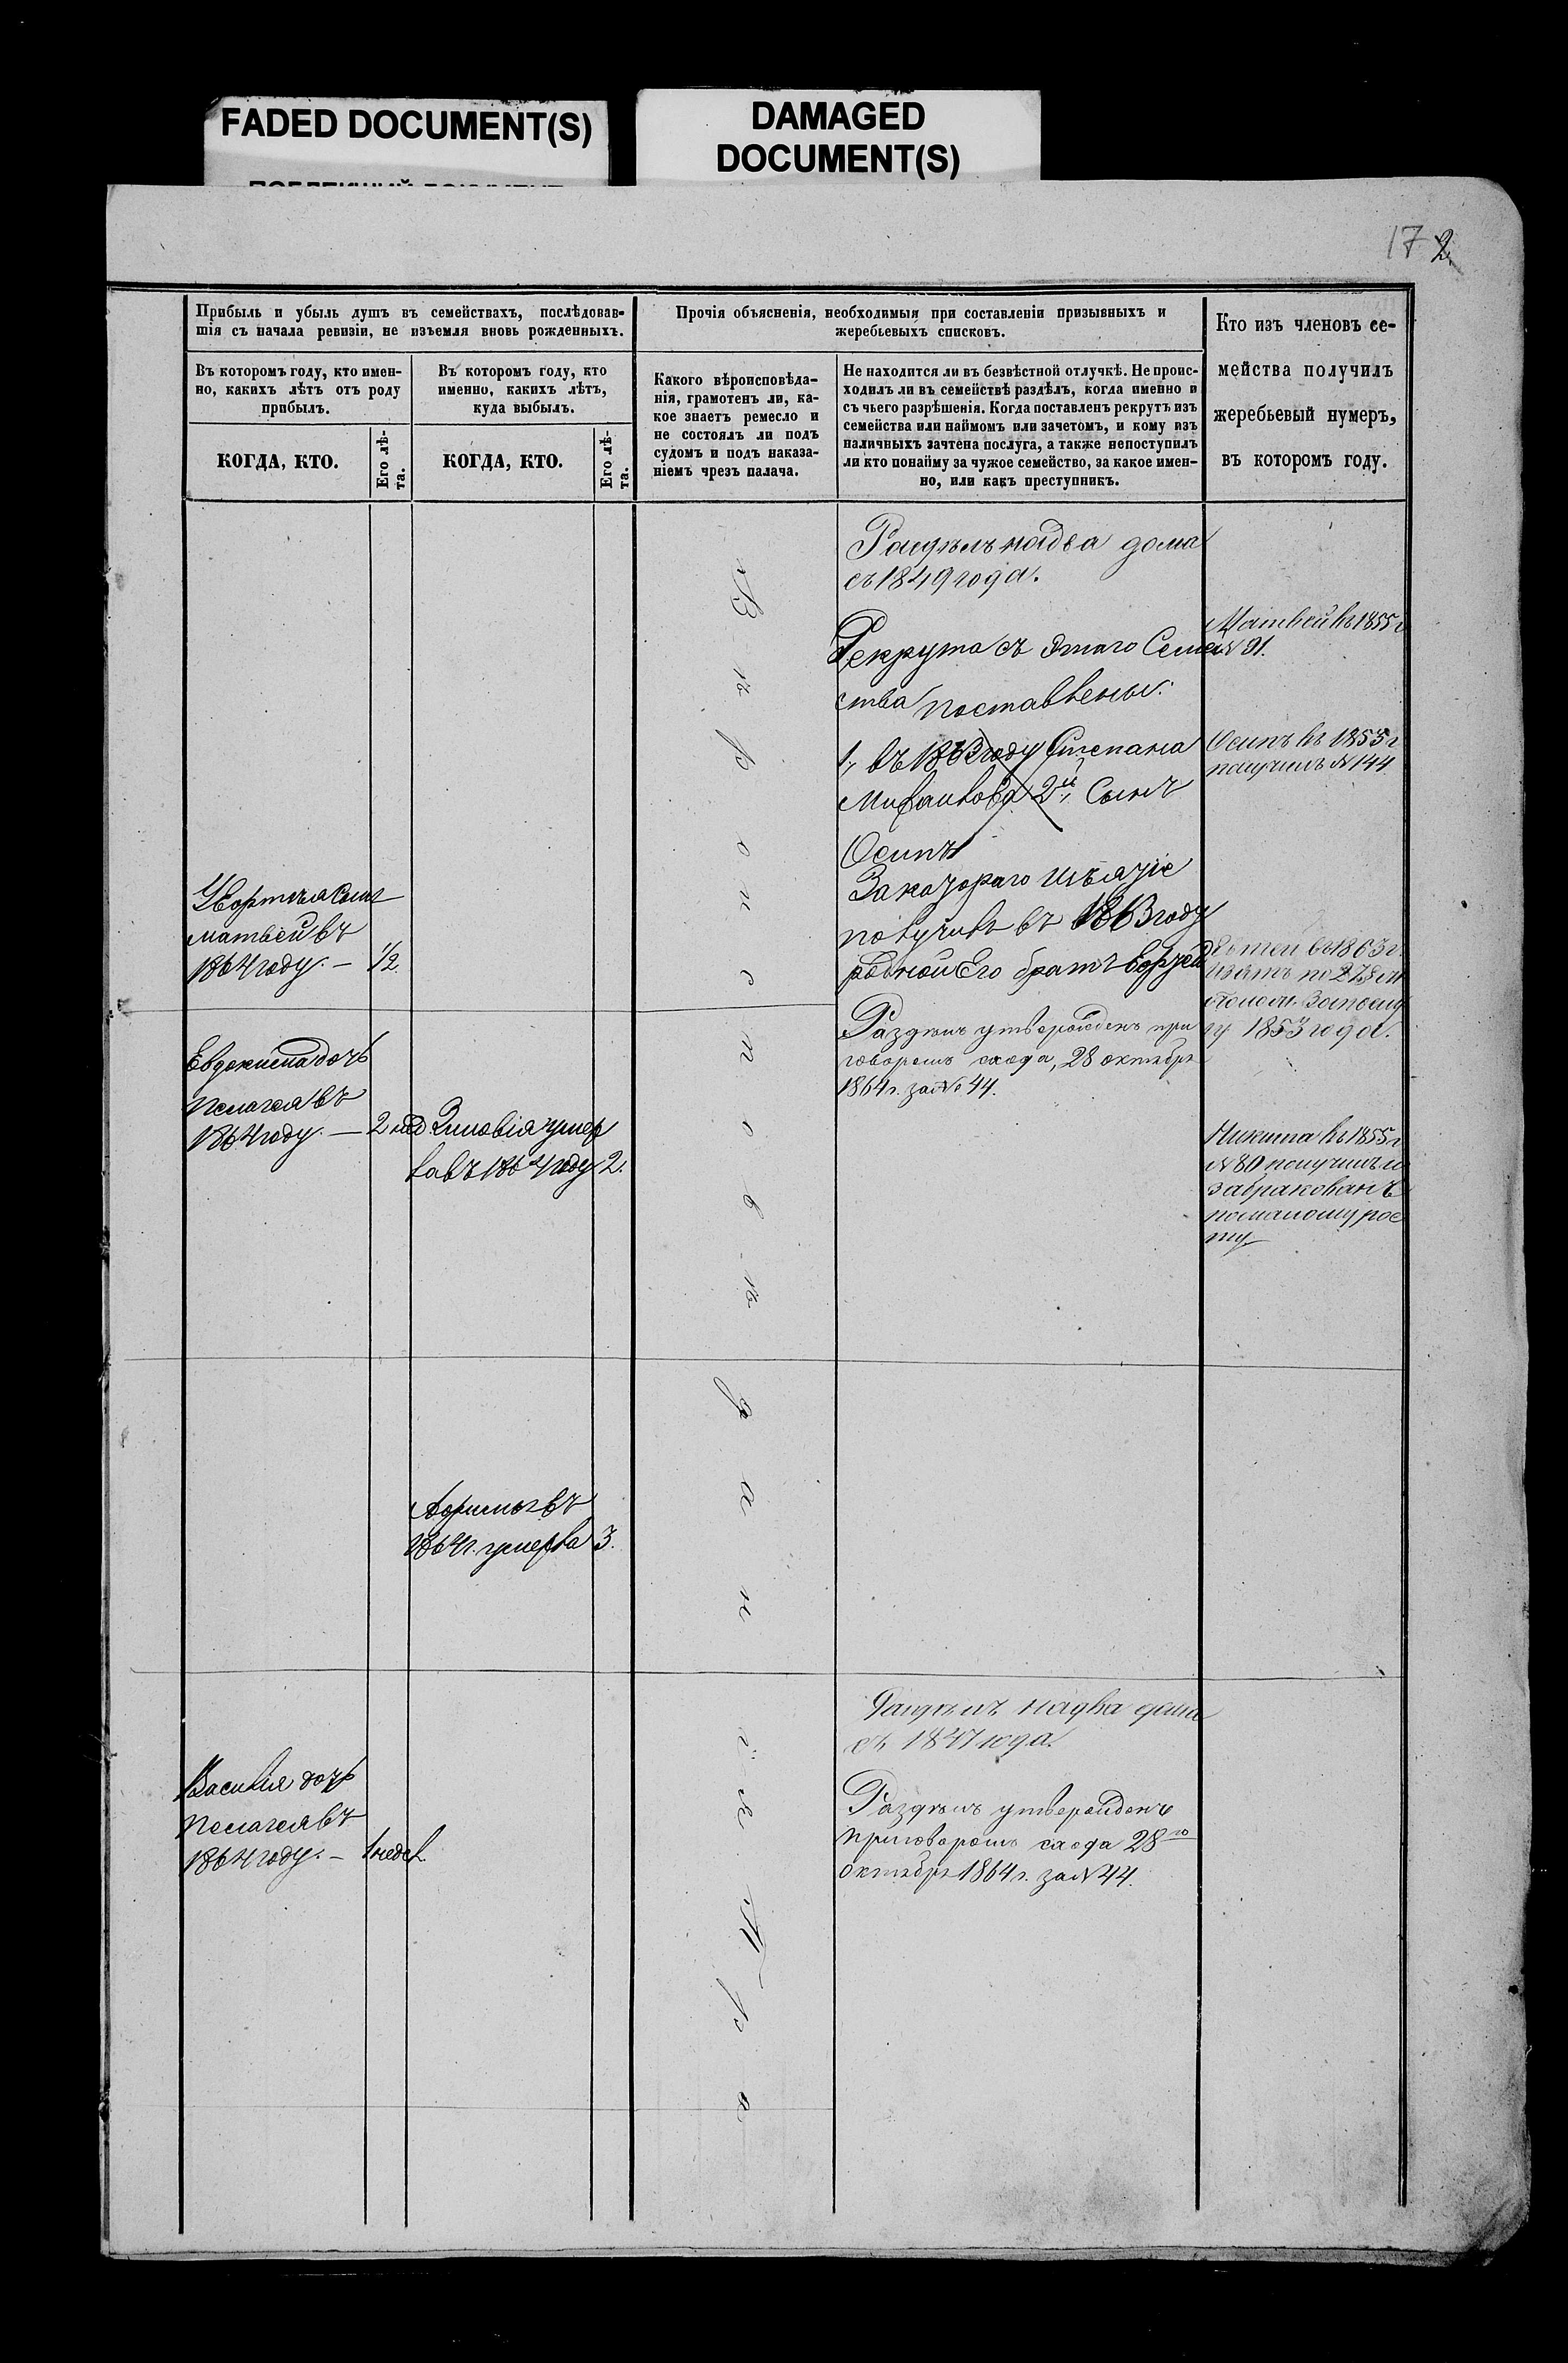 FADED DOCUMENT(S)
DAMAGED
DOCUMENT(S)
17 2
Прибыль и убыль душъ въ семействахъ, послѣдовав-
шія съ начала ревизіи, не изъемля вновь рожденныхъ.
Прочія объясненія, необходимыя при составленіи призывныхъ и
жеребьевыхъ списковъ.
Кто изъ членовъ се-
мейства получилъ
жеребьевый нумеръ,
въ которомъ году.
Въ которомъ году, кто имен-
но, какихъ лѣтъ отъ роду
прибылъ.
Въ которомъ году, кто
именно, какихъ лѣтъ,
куда выбылъ.
Какого вѣроисповѣда-
нія, грамотенъ ли, ка-
кое знаетъ ремесло и
не состоялъ ли подъ
судомъ и подъ наказа-
ніемъ чрезъ палача.
Не находится ли въ безвѣстной отлучкѣ. Не проис-
ходилъ ли въ семействѣ раздѣлъ, когда именно и
съ чьего разрѣшенія. Когда поставленъ рекрутъ изъ
семейства или наймомъ или зачетомъ, и кому изъ
наличныхъ зачтена послуга, а также непоступилъ
ли кто понайму за чужое семейство, за какое имен-
но, или какъ преступникъ.
КОГДА, КТО.
Его лѣ-
та.
КОГДА, КТО.
Его лѣ-
та.
надва дома
съ 1849 года.
Рекрута съ этаго Семей
ства поставлены:
1, въ 1863 году Степана
2й, Сынъ
Осипъ
Закотораго
въ 1863 году
родной Его братъ
Раздѣлъ утвержденъ при
говоромъ схода, 28 октября
1864 г. за № 44.
Матвей въ 1855 г
№ 91.
Осипъ въ 1853 г
получилъ № 144.
въ 1863 г.
1853 года.
Никита въ 1855 г
№ 80 получилъ и
забракованъ
помалому рос
ту
матвей въ
1864 году. — 1/2
Евдокима дочь
Пелагея въ
1864 году. — 2 нед
Зиновія умер
ла въ 1864 году 2.
въ
1864 г. умерла 3.
Василія дочь
Пелагея въ
1864 году. — 1 недел
В ѣ р о и с п о в ѣ д а н і я П р а
надва дома
съ 1847 года.
Раздѣлъ утвержденъ
приговоромъ схода 28го
октября 1864 г. за № 44.